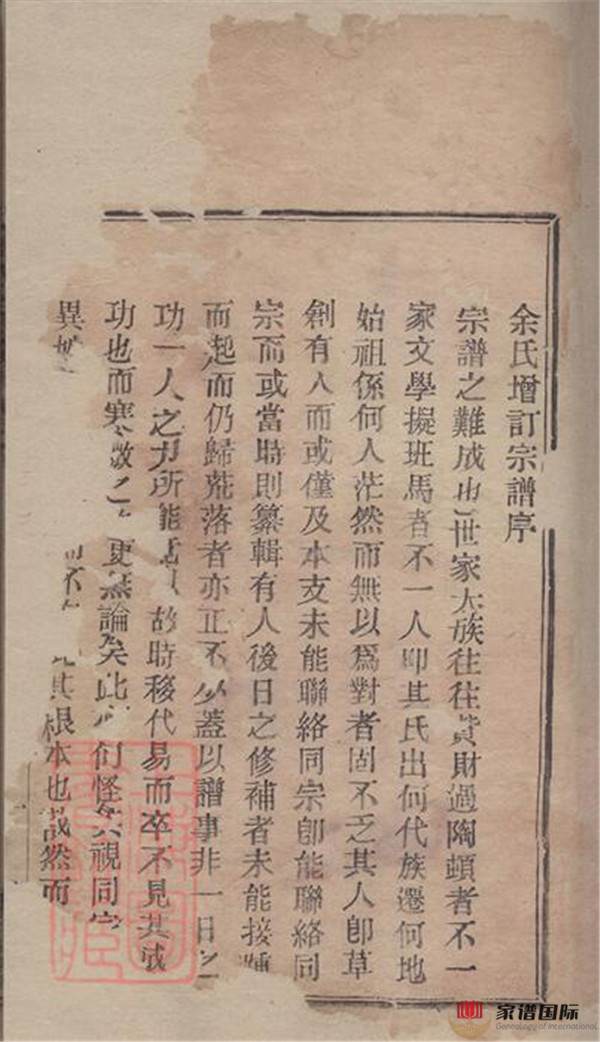 余氏增訂宗譜序
宗譜之難成也世家大族往往貲財過陶頓者不一
家文學擬班馬者不一人叩其氏出何代族遷何地
始祖係何人茫然而無以爲對者固不乏其人卽草
創有人而或僅及本支未能聯絡同宗卽能聯絡同
宗而或當時則纂輯有人後日之修補者未能接踵
而起而仍歸荒落者亦正不少蓋以譜事非一日之
功一人之力所能故時移代易而卒不見其成
功也而寒更無論矣此怪其視同
異不其根本也哉然而
家谱国际
Genealogy of International